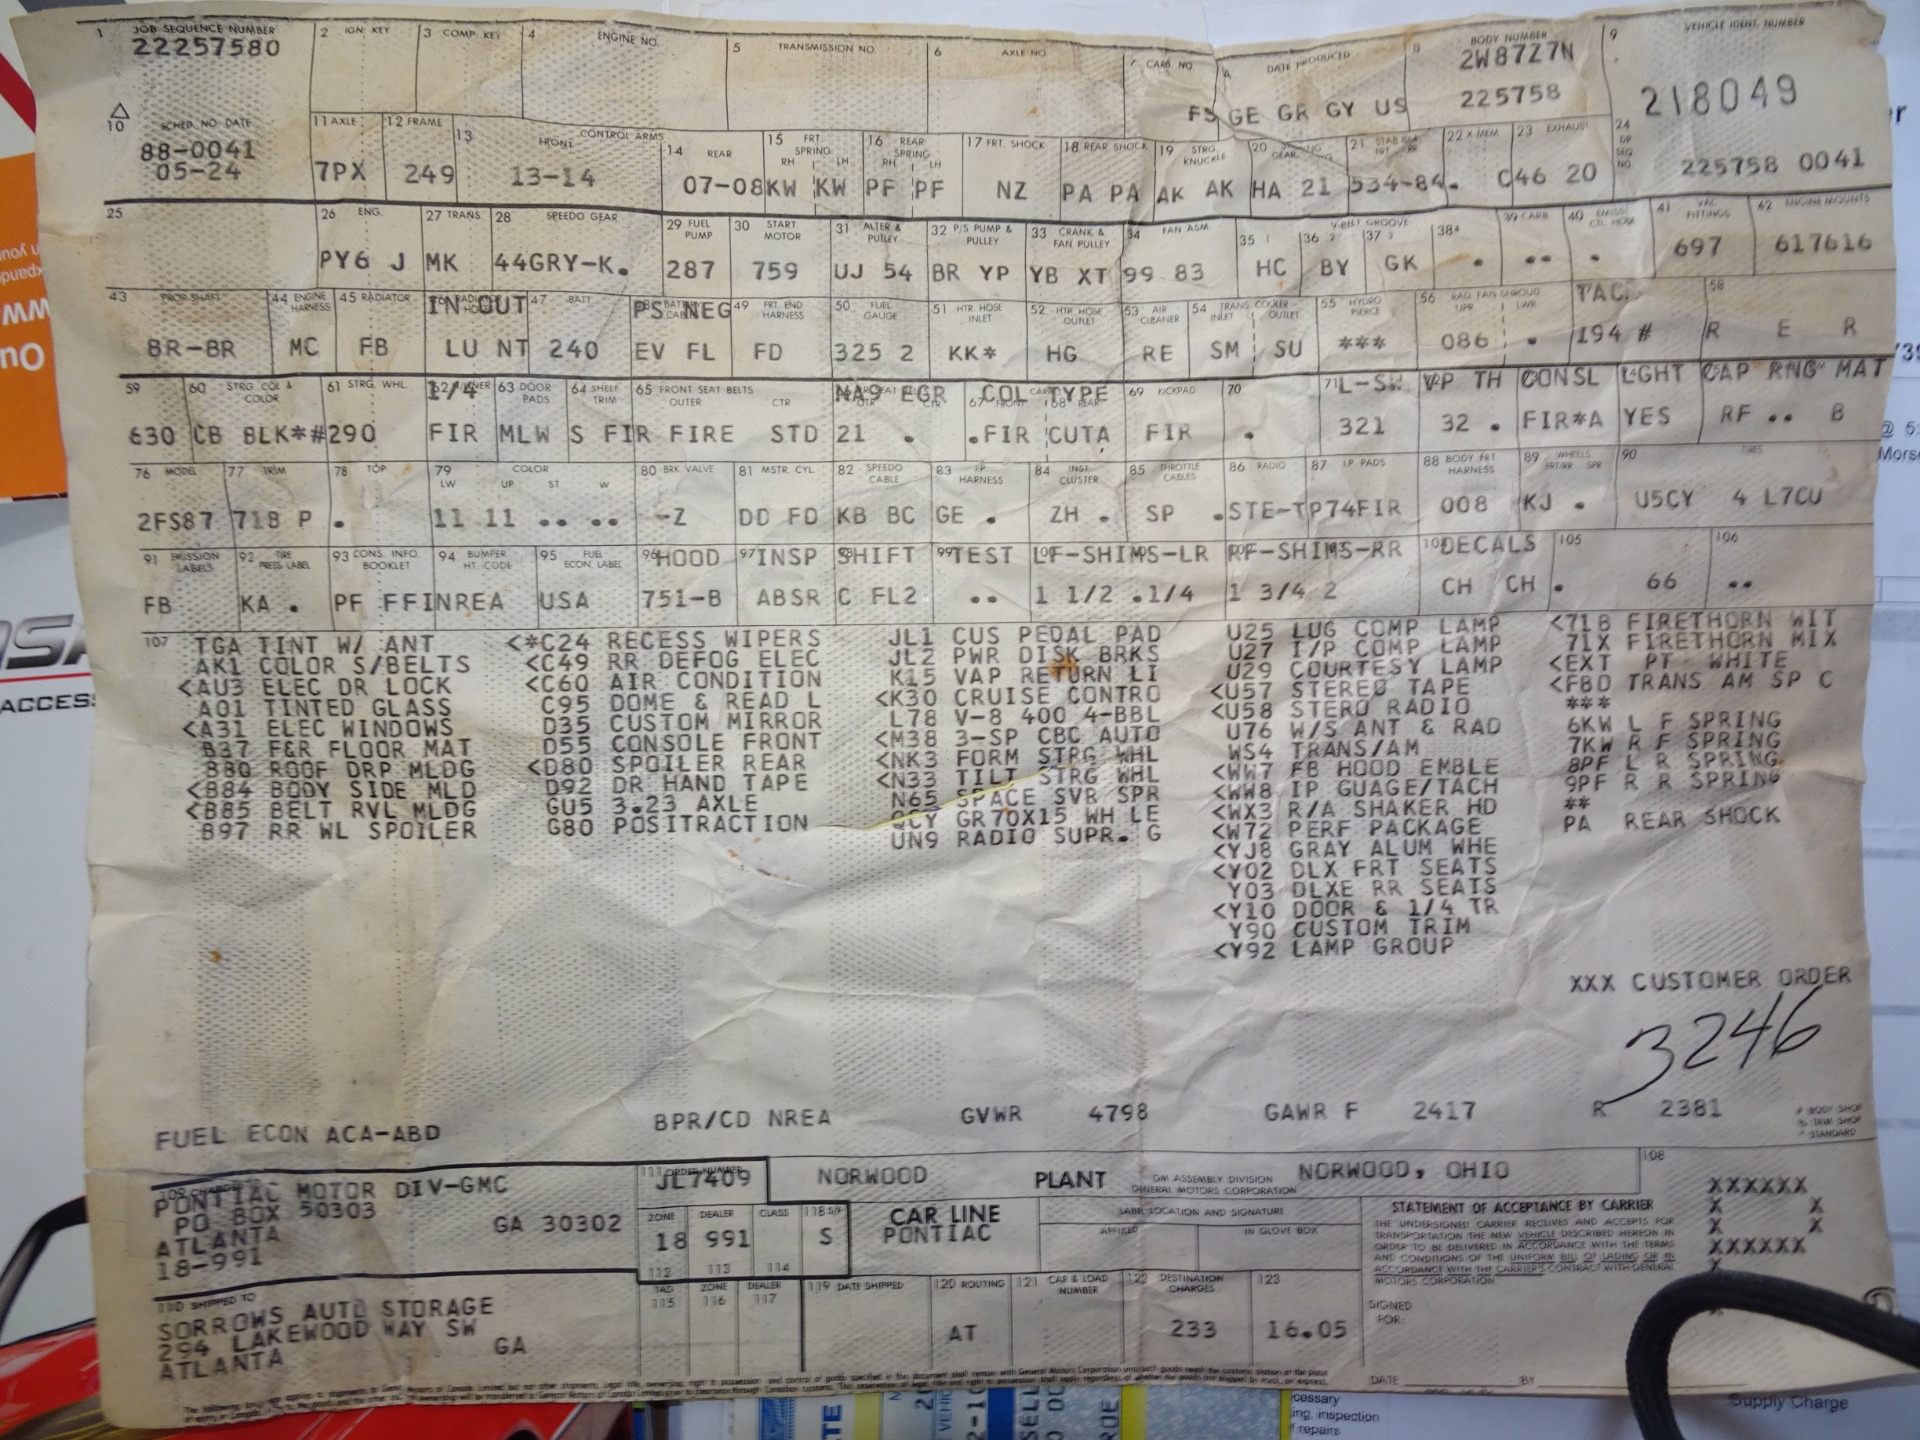 1 JOB SEQUENCE NUMBER 2 IGN. KEY 3 COMP. KEY 4 ENGINE NO. 5 TRANSMISSION NO. 6 AXLE NO. 7 CARB. NO. A DATE PRODUCED 8 BODY NUMBER 9 VEHICLE IDENT. NUMBER
22257580 2W87Z7N
FS GE GR GY US 225758 218049
10 SCHED. NO. DATE 11 AXLE 12 FRAME 13 FRONT CONTROL ARMS 14 REAR 15 FRT. SPRING RH LH 16 REAR SPRING RH LH 17 FRT. SHOCK 18 REAR SHOCK 19 STRG. KNUCKLE 20 GEAR 21 STAB BAR 22 X-MEM 23 EXHAUST 24 GP SEQ NO
88-0041
05-24 7PX 249 13-14 07-08 KW KW PF PF NZ PA PA AK AK HA 21 534-84. C46 20 225758 0041
25 26 ENG. 27 TRANS 28 SPEEDO GEAR 29 FUEL PUMP 30 START. MOTOR 31 ALTER & PULLEY 32 P/S PUMP & PULLEY 33 CRANK & FAN PULLEY 34 FAN ASM. V-BELT GROOVE 35 1 36 2 37 3 38 4 39 CARB. 40 EMISS CTL HOSE 41 VAC FITTINGS 42 ENGINE MOUNTS
PY6 J MK 44GRY-K. 287 759 UJ 54 BR YP YB XT 99 83 HC BY GK . .. . 697 617616
43 PROP SHAFT 44 ENGINE HARNESS 45 RADIATOR IN OUT 47 BATT. PS NEG 49 FRT. END HARNESS 50 FUEL GAUGE 51 HTR. HOSE INLET 52 HTR HOSE OUTLET 53 AIR CLEANER 54 TRANS COOLER INLET OUTLET 55 HYDRO PIERCE 56 RAD. FAN SHROUD UPR LWR TAC 58
BR-BR MC FB LU NT 240 EV FL FD 325 2 KK* HG RE SM SU *** 086 . 194 # R E R
59 60 STRG. COL & COLOR 61 STRG. WHL. 1/4 63 DOOR PADS 64 SHELF TRIM 65 FRONT SEAT BELTS OUTER CTR NA9 EGR COL TYPE 67 FRONT 68 REAR 69 KICKPAD 70 71 L-SW VP TH CONSL LGHT CAP RNG MAT
630 CB BLK*#290 FIR MLW S FIR FIRE STD 21 . .FIR CUTA FIR . 321 32 . FIR*A YES RF .. B
76 MODEL 77 TRIM 78 TOP 79 COLOR LW UP ST W 80 BRK VALVE 81 MSTR. CYL. 82 SPEEDO CABLE 83 I.P. HARNESS 84 INST. CLUSTER 85 THROTTLE CABLES 86 RADIO 87 I.P. PADS 88 BODY FRT HARNESS 89 WHEELS FRT/RR SPR 90 TIRES
2FS87 718 P . 11 11 .. .. -Z DD FD KB BC GE . ZH . SP .STE-TP74FIR 008 KJ . U5CY 4 L7CU
91 EMISSION LABELS 92 TIRE PRESS LABEL 93 CONS. INFO. BOOKLET 94 BUMPER HT. CODE 95 FUEL ECON. LABEL 96 HOOD 97 INSP SHIFT 99 TEST LF-SHIMS-LR RF-SHIMS-RR DECALS 105 106
FB KA . PF FFINREA USA 751-B ABSR C FL2 .. 1 1/2 .1/4 1 3/4 2 CH CH . 66 ..
107 TGA TINT W/ ANT
AK1 COLOR S/BELTS
<AU3 ELEC DR LOCK
A01 TINTED GLASS
<A31 ELEC WINDOWS
B37 F&R FLOOR MAT
B80 ROOF DRP MLDG
<B84 BODY SIDE MLD
<B85 BELT RVL MLDG
B97 RR WL SPOILER
<*C24 RECESS WIPERS
<C49 RR DEFOG ELEC
<C60 AIR CONDITION
C95 DOME & READ L
D35 CUSTOM MIRROR
D55 CONSOLE FRONT
<D80 SPOILER REAR
D92 DR HAND TAPE
GU5 3.23 AXLE
G80 POSITRACTION
JL1 CUS PEDAL PAD
JL2 PWR DISK BRKS
K15 VAP RETURN LI
<K30 CRUISE CONTRO
L78 V-8 400 4-BBL
<M38 3-SP CBC AUTO
<NK3 FORM STRG WHL
<N33 TILT STRG WHL
N65 SPACE SVR SPR
QCY GR70X15 WH LE
UN9 RADIO SUPR. G
U25 LUG COMP LAMP
U27 I/P COMP LAMP
U29 COURTESY LAMP
<U57 STEREO TAPE
<U58 STERO RADIO
U76 W/S ANT & RAD
WS4 TRANS/AM
<WW7 FB HOOD EMBLE
<WW8 IP GUAGE/TACH
<WX3 R/A SHAKER HD
<W72 PERF PACKAGE
<YJ8 GRAY ALUM WHE
<Y02 DLX FRT SEATS
Y03 DLXE RR SEATS
<Y10 DOOR & 1/4 TR
Y90 CUSTOM TRIM
<Y92 LAMP GROUP
<718 FIRETHORN WIT
71X FIRETHORN MIX
<EXT PT WHITE
<FBO TRANS AM SP C
***
6KW L F SPRING
7KW R F SPRING
8PF L R SPRING
9PF R R SPRING
**
PA REAR SHOCK
XXX CUSTOMER ORDER
3246
FUEL ECON ACA-ABD BPR/CD NREA GVWR 4798 GAWR F 2417 R 2381
# BODY SHOP
% TRIM SHOP
* STANDARD
PONTIAC MOTOR DIV-GMC
PO BOX 50303
ATLANTA GA 30302
18-991
111 ORDER NUMBER
JL7409
NORWOOD PLANT GM ASSEMBLY DIVISION GENERAL MOTORS CORPORATION NORWOOD, OHIO 108
ZONE DEALER CLASS 118 S/F
18 991 S
112 113 114
CAR LINE
PONTIAC
LABEL LOCATION AND SIGNATURE
AFFIXED IN GLOVE BOX
STATEMENT OF ACCEPTANCE BY CARRIER
THE UNDERSIGNED CARRIER RECEIVES AND ACCEPTS FOR
TRANSPORTATION THE NEW VEHICLE DESCRIBED HEREON IN
ORDER TO BE DELIVERED IN ACCORDANCE WITH THE TERMS
AND CONDITIONS OF THE UNIFORM BILL OF LADING OR IN
ACCORDANCE WITH THE CARRIER'S CONTRACT WITH GENERAL
MOTORS CORPORATION
XXXXXX
X X
X X
XXXXXX
X
110 SHIPPED TO
SORROWS AUTO STORAGE
294 LAKEWOOD WAY SW
ATLANTA GA
TAG 115 ZONE 116 DEALER 117 119 DATE SHIPPED 120 ROUTING 121 CAR & LOAD NUMBER 122 DESTINATION CHARGES 123
AT 233 16.05
SIGNED
FOR:
DATE BY
Supply Charge
ing, inspection
f repairs